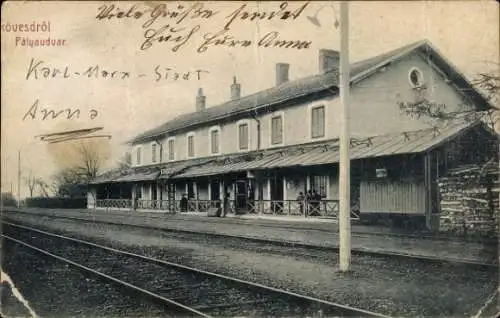 kövesdről
Pályaudvar.
Viele Grüße sendet
Euch Eure Anna
Karl-Marx-Stadt
Anna